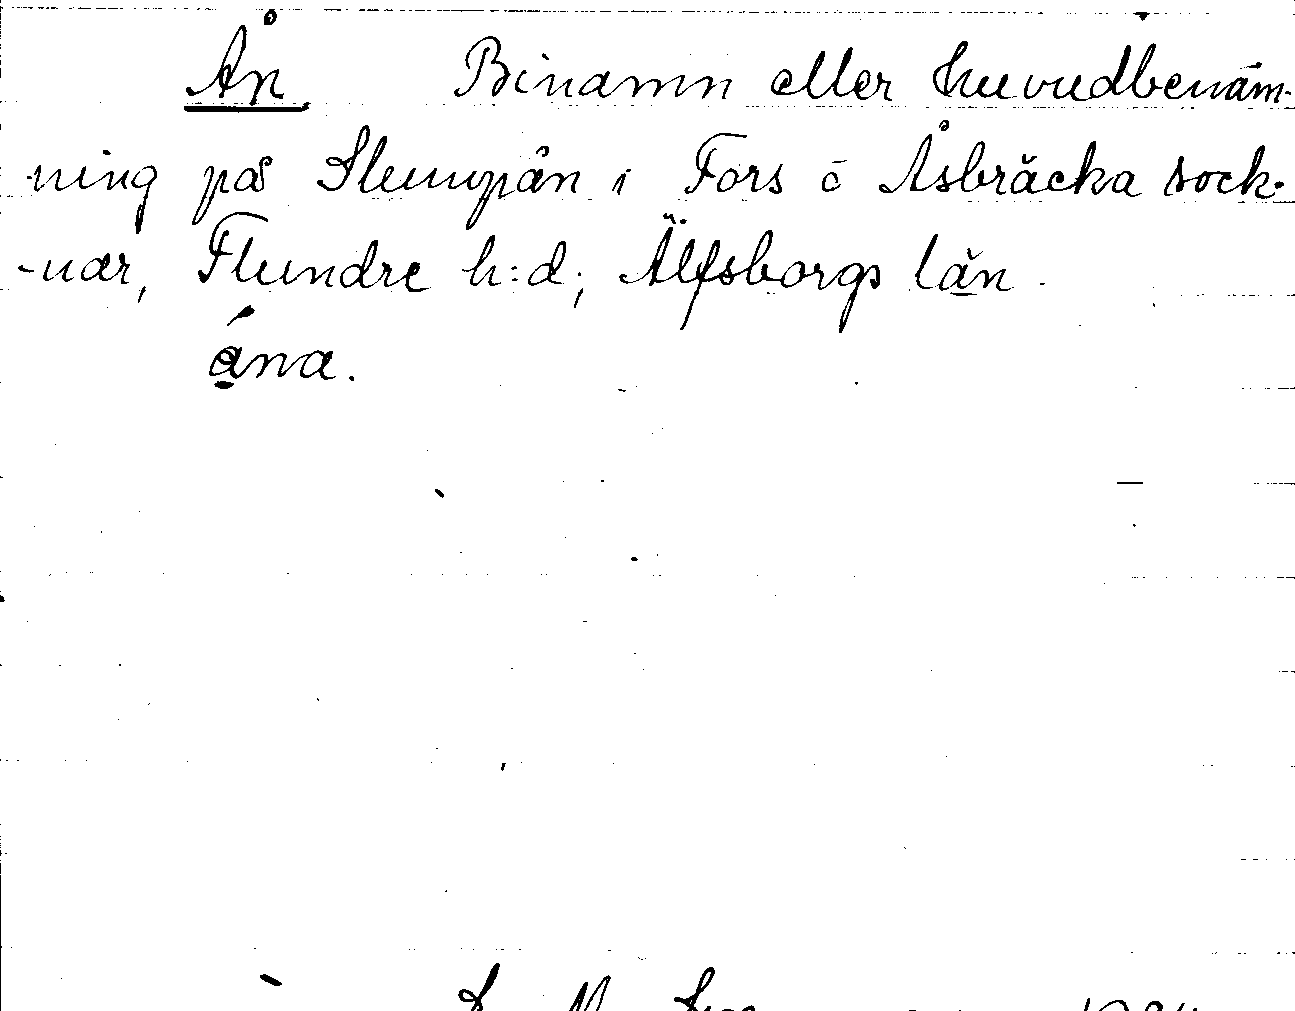 Ån. Binamn eller huvudbenäm-
ning på Slumpån i Fors o Åsbräcka sock-
-nar, Flundre h:d, Älfsborgs län.
ána.